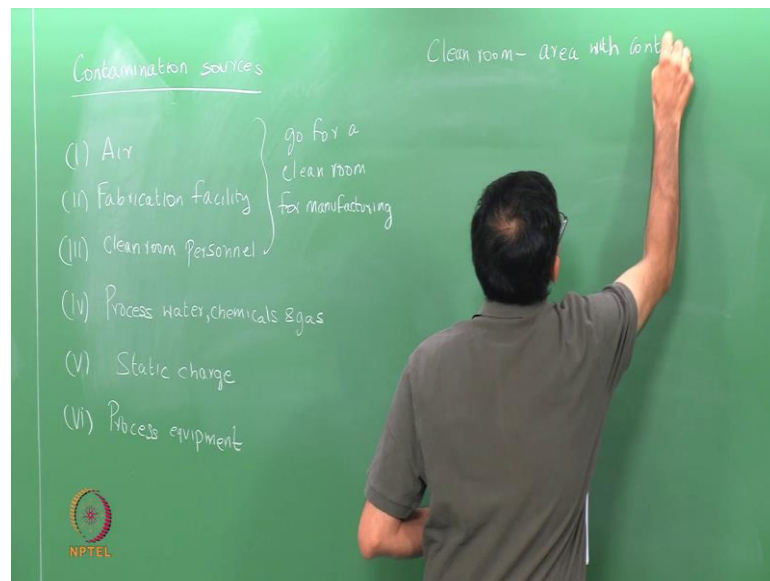 Contamination sources
(I) Air
(II) Fabrication facility
(III) Cleanroom Personnel
go for a
clean room
for manufacturing
(IV) Process water, chemicals & gas
(V) Static charge
(VI) Process equipment
Clean room – area with cont
NPTEL